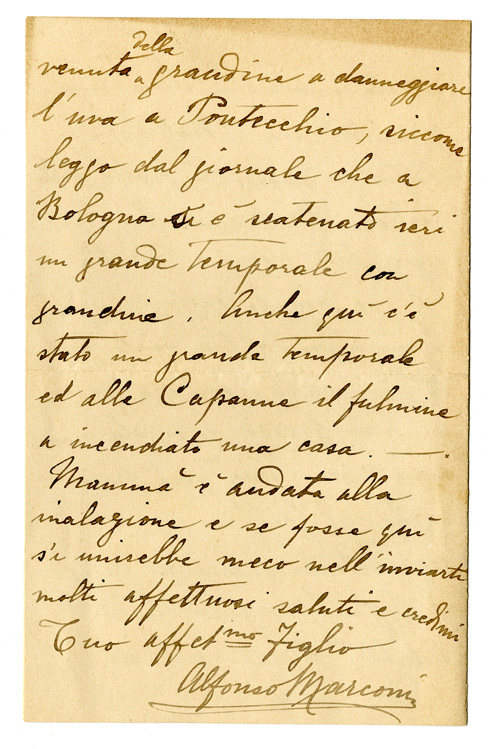 venuta della a grandine a danneggiare
l'uva a Pontecchio, siccome
leggo dal giornale che a
Bologna si è scatenato ieri
un grande temporale con
grandine. Anche quì c'è
stato un grande temporale
ed alle Capanne il fulmine
a incendiato una casa. —.
Mammà è andata alla
inalazione e se fosse quì
s'unirebbe meco nell'inviarti
molti affettuosi saluti e credimi
Tuo affetmo Figlio
Alfonso Marconi